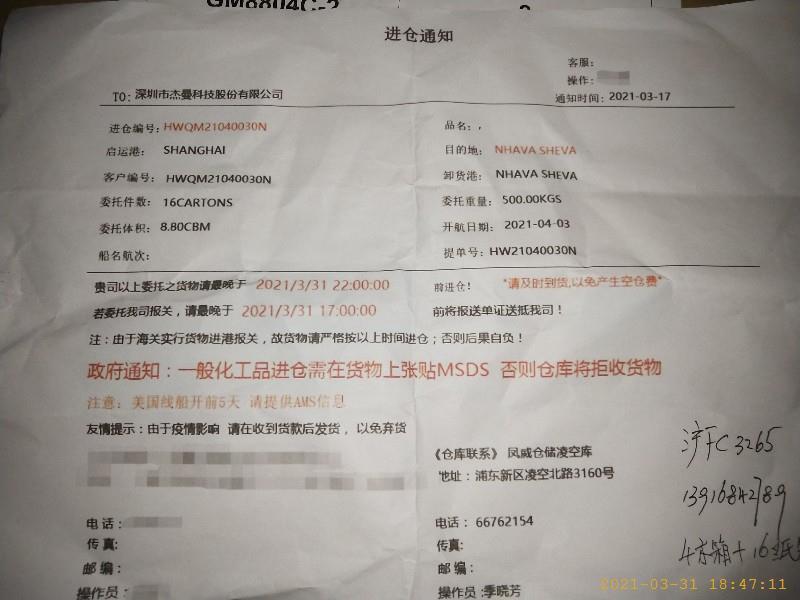 GM8804C-2
进仓通知
客服：
操作：
TO: 深圳市杰曼科技股份有限公司
通知时间：2021-03-17
进仓编号：HWQM21040030N
品名：,
启运港： SHANGHAI
目的地： NHAVA SHEVA
客户编号： HWQM21040030N
卸货港： NHAVA SHEVA
委托件数： 16CARTONS
委托重量： 500.00KGS
委托体积： 8.80CBM
开航日期： 2021-04-03
船名航次：
提单号：HW21040030N
贵司以上委托之货物请最晚于 2021/3/31 22:00:00 前进仓！ *请及时到货,以免产生空仓费*
若委托我司报关，请最晚于 2021/3/31 17:00:00 前将报送单证送抵我司！
注：由于海关实行货物进港报关，故货物请严格按以上时间进仓；否则后果自负！
政府通知：一般化工品进仓需在货物上张贴MSDS 否则仓库将拒收货物
注意：美国线船开前5天 请提供AMS信息
友情提示：由于疫情影响 请在收到货款后发货，以免弃货
《仓库联系》 凤威仓储凌空库
地址：浦东新区凌空北路3160号
沪FC3265
13916842789
电话：
电话： 66762154
传真:
传真:
邮编：
邮编：
操作员：
操作员:季晓芳
2021-03-31 18:47:11